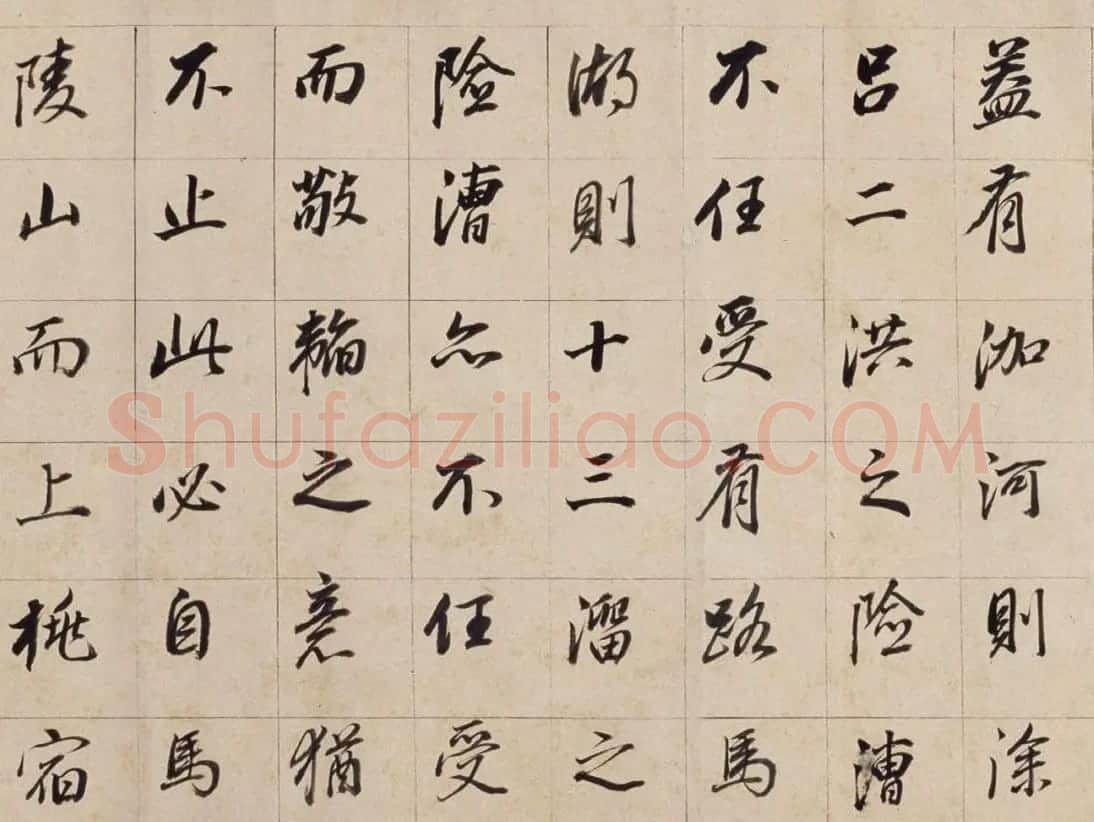 蓋有泇河則徐
呂二洪之險漕
不任受有路馬
湖則十三溜之
險漕亦不任受
而敬韜之意猶
不止此必自馬
陵山而上桃宿
Shufaziliao.COM